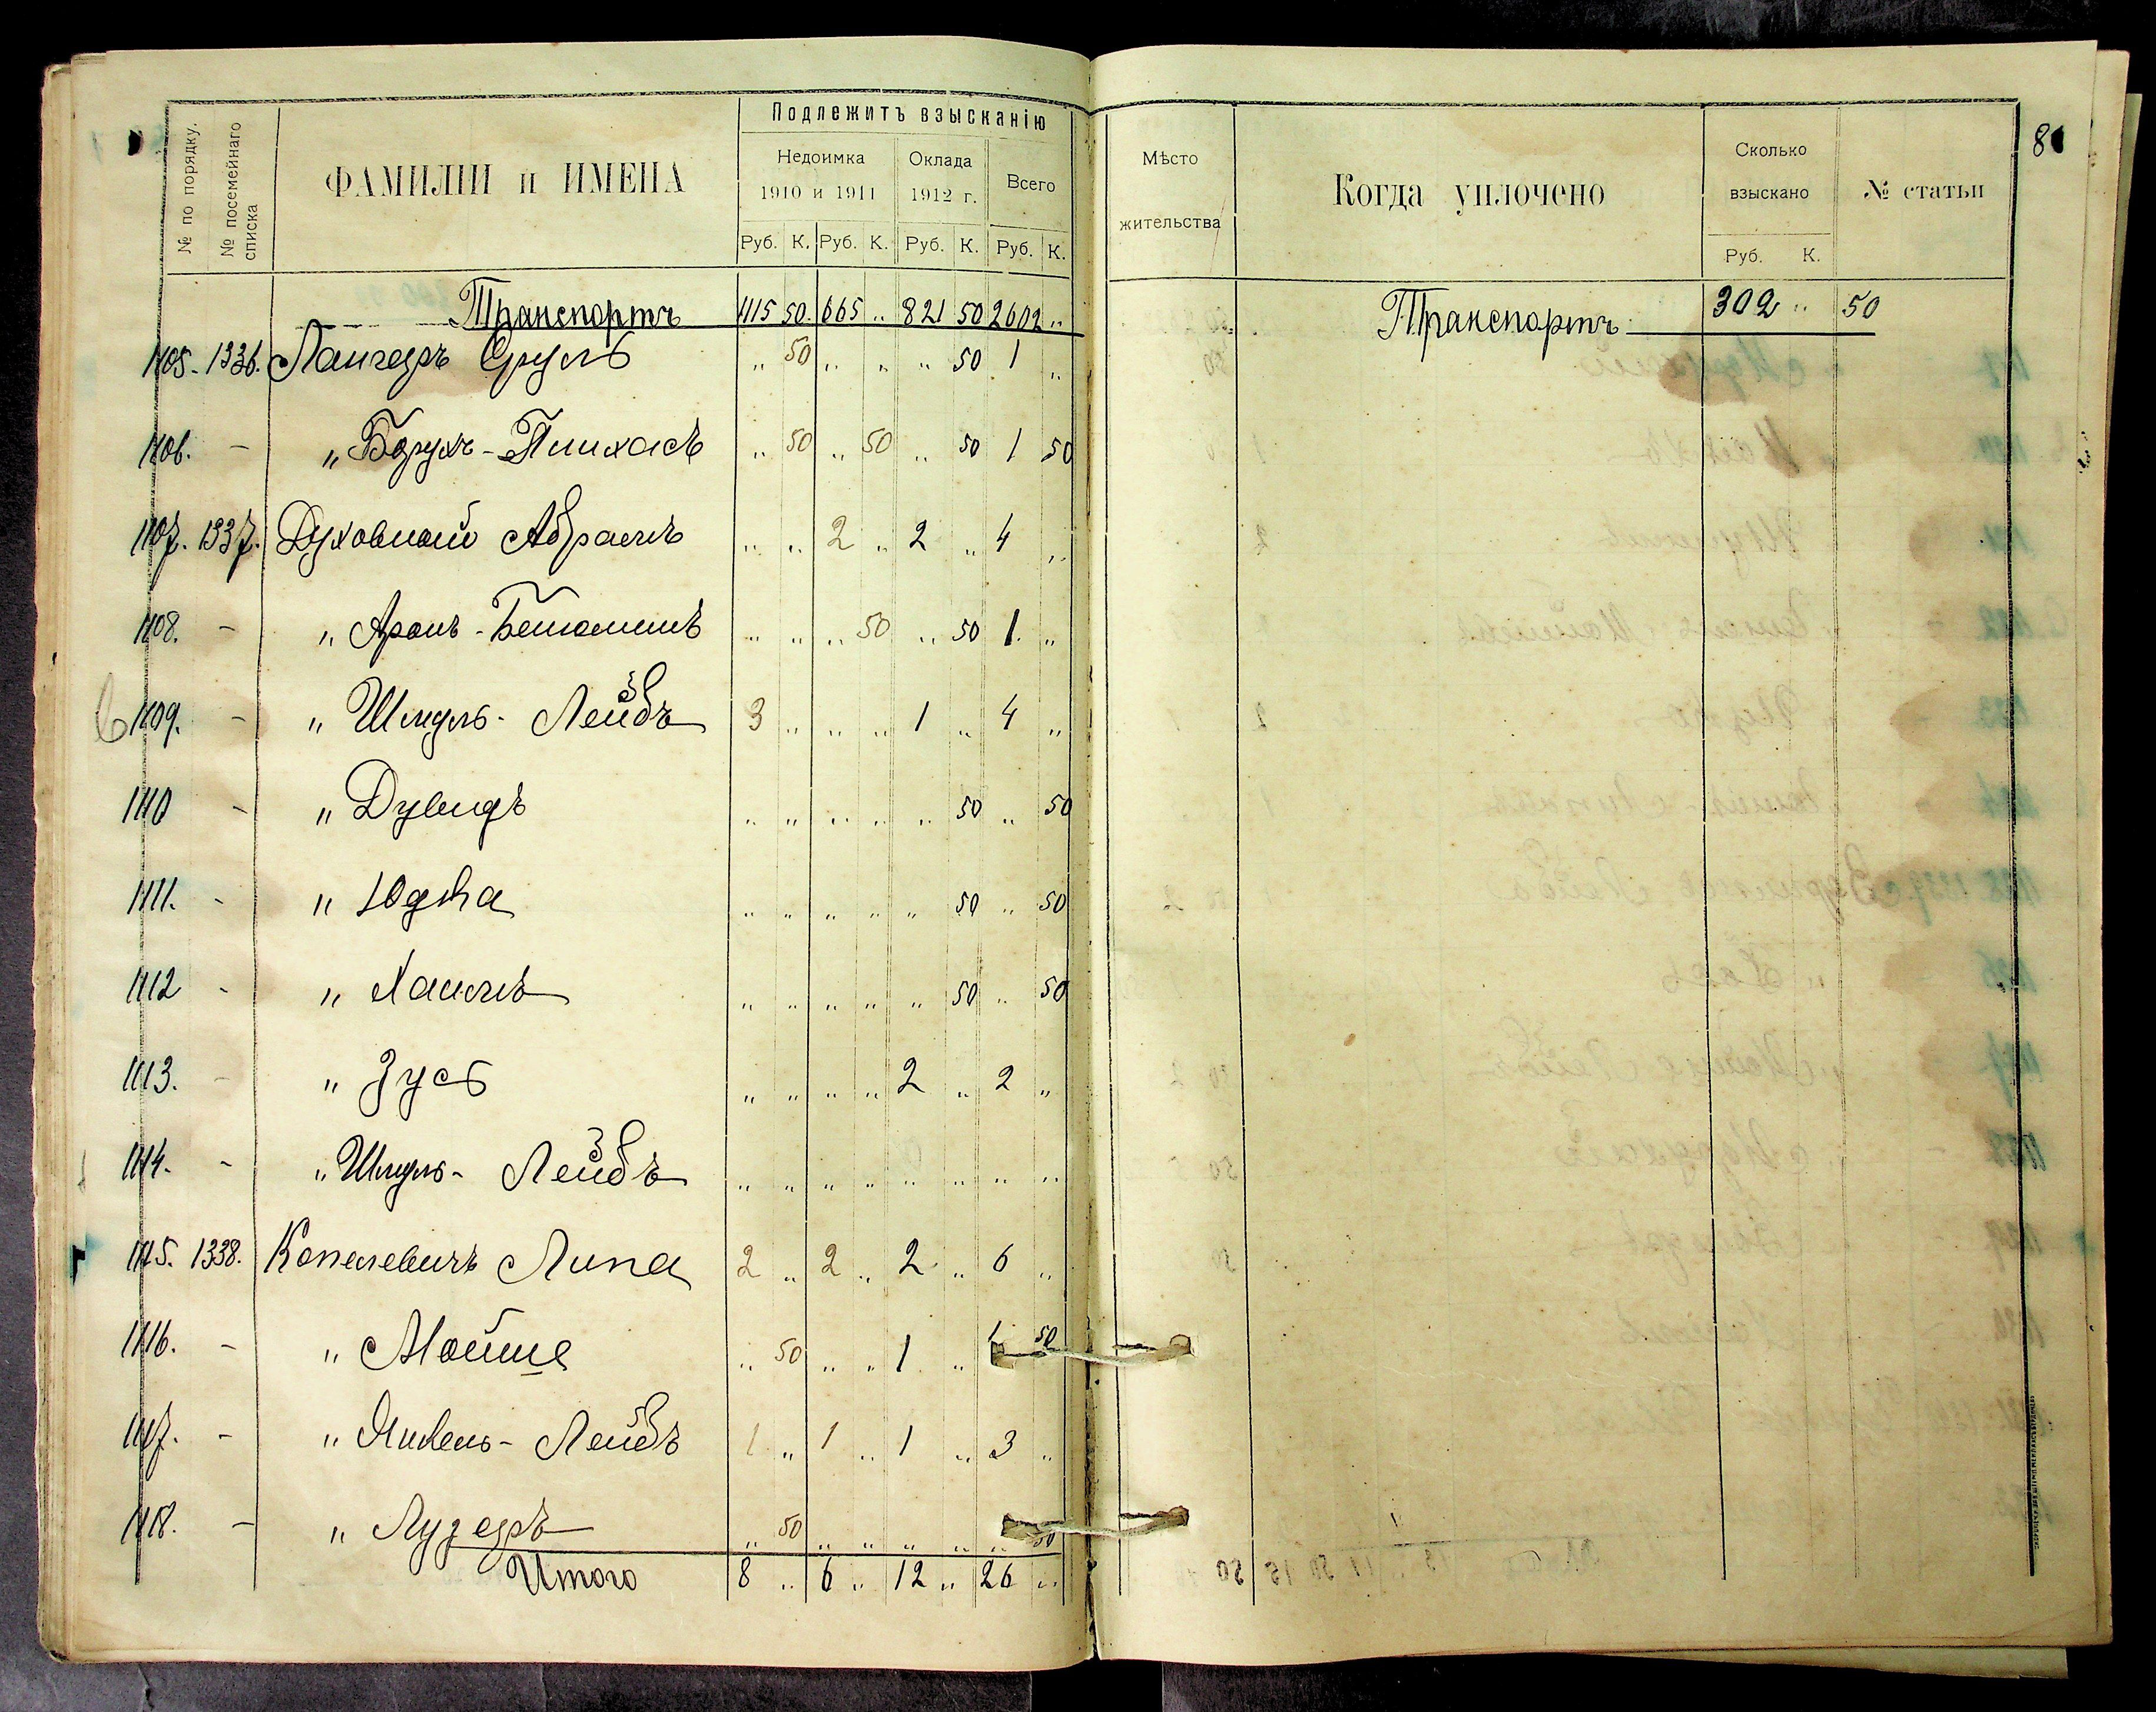 Подлежитъ взысканію
№ по порядку.
№ посемейнаго списка
ФАМИЛІИ и ИМЕНА
Недоимка 1910 и 1911
Оклада 1912 г.
Всего
Руб. К. Руб. К. Руб. К. Руб. К.
Транспортъ 1115 50. 665 „ 821 50 2602 „
1105. 1336. Лангеръ Сруль „ 50 „ „ „ 50 1 „
1106. - „ Борухъ-Пинхасъ „ 50 „ 50 „ 50 1 50
1107. 1337. Духовной Абрамъ „ „ 2 „ 2 „ 4 „
1108. - „ Аронъ-Беніоминъ „ „ „ 50 „ 50 1. „
1109. - „ Шмуль-Лейбъ 3 „ „ „ 1 „ 4 „
1110 - „ Дувидъ „ „ „ „ „ 50 „ 50
1111. - „ Юдка „ „ „ „ „ 50 „ 50
1112 - „ Хаимъ „ „ „ „ „ 50 „ 50
1113. - „ Зусь „ „ „ „ 2 „ 2 „
1114. - „ Шмуль-Лейбъ „ „ „ „ „ „ „ „
1115. 1338. Копелевичъ Липа 2 „ 2 „ 2 „ 6 „
1116. - „ Мойше „ 50 „ „ 1 „ 1 50
1117. - „ Янкель-Лейбъ 1 „ 1 „ 1 „ 3 „
1118. - „ Лузеръ „ 50 „ „ „ „ „ 50
Итого 8 „ 6 „ 12 „ 26 „
81
Мѣсто жительства
Когда уплочено
Сколько взыскано
№ статьи
Руб. К.
Транспортъ 302 „ 50